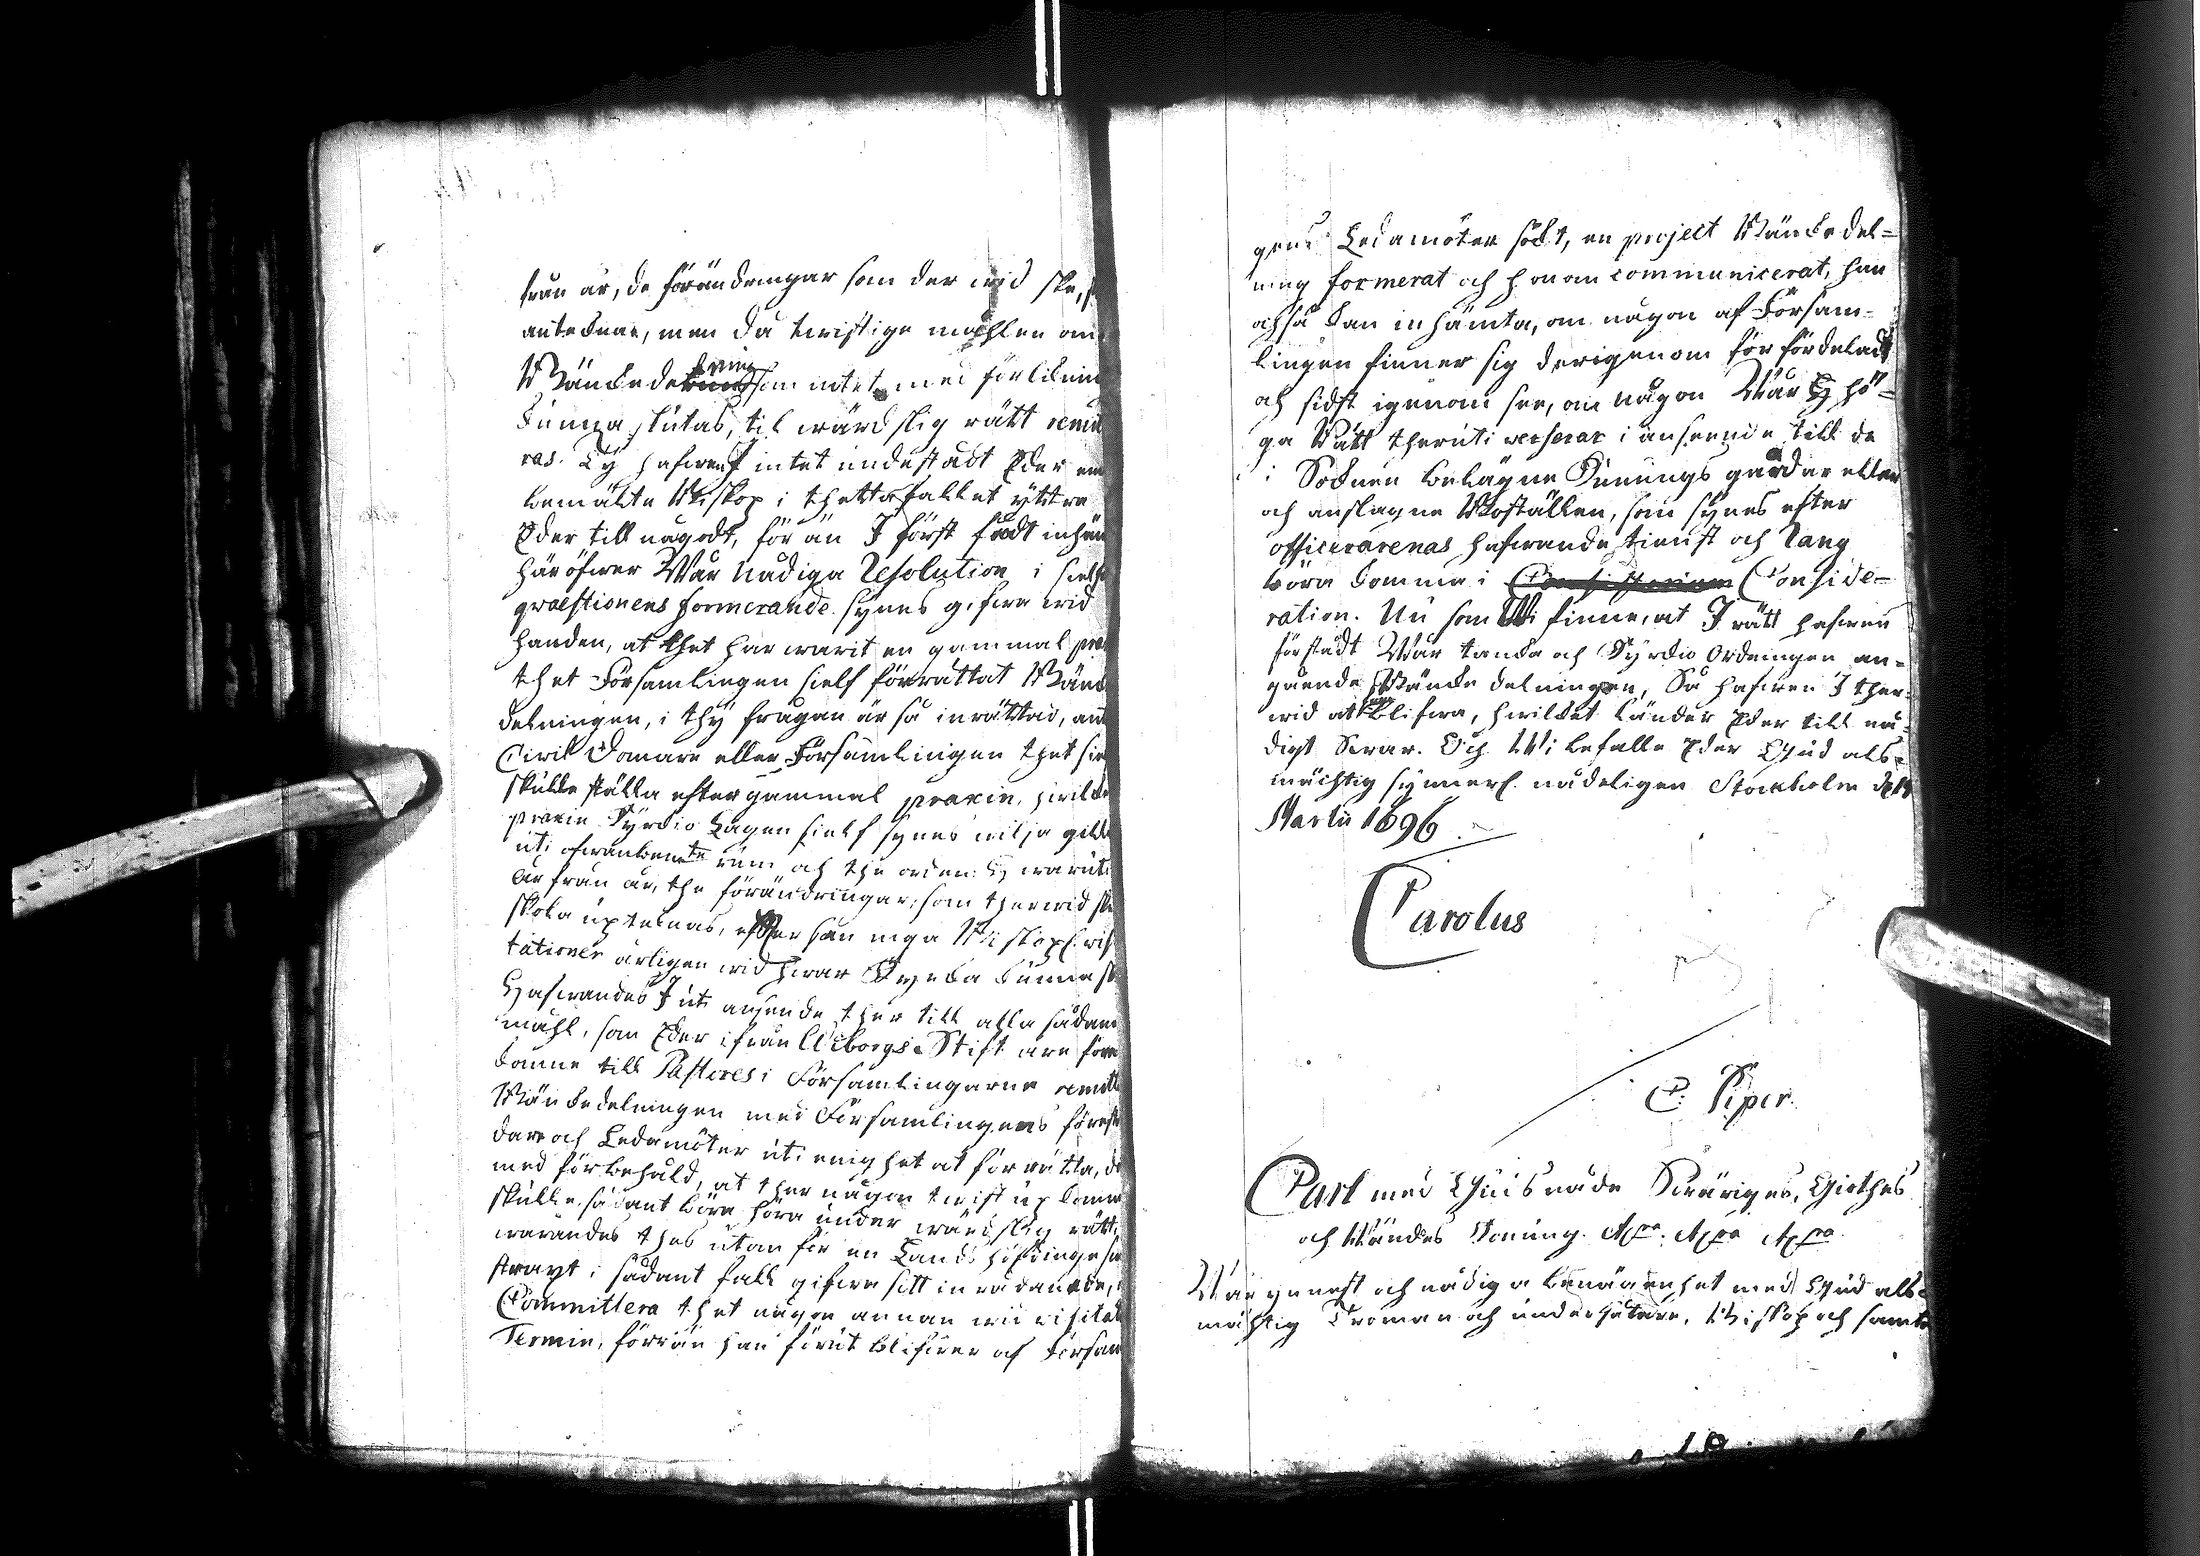 från år, de förändringar som der wid ske, s
antekna, men då twistige måhlen om
Bänckedelning som intet med förlikning
kunna slutas, til wärdslig rätt remitte
ras. Ty hafwen I intet understådt Eder em
bemälte Biskop i thetta fallet yttra
Eder till någodt, för än I först fådt inhäm
häröfwer Wår Nådiga Resolution i sielfwa
quæstionens formerande synes gifwa wid
handen, at thet har warit en gammal prax
thet Församlingen sielf förrättat Bänck
delningen, i thy frågan är så inrättad, antingen
Civil Domare eller Församlingen thet sielf
skulle ställa efter gammal praxin, hwilcken
praxin Kyrckio Lagen sielf synes wilja gilla
uti ofwanbemte rum och the orden: Hwaruti
år från år, the förändringar, som therwid ske
skola uptecknas, efter som inga Biskops visi
tationer årligen wid hwar Kyrcka kunna ske
Hafwandes I uti anseende ther till alla sådane
måhl, som Eder ifrån Wiborgs Stift äre före
komne till Pastores i Församlingarne remitte
Bänckedelningen med Församlingens förestån
dare och Ledamöter uti enighet at förrätta, doch
med förbehåld, at ther någon twist upkomme
skulle sådant böra höra under wärdslig rätt,
warandes thes utan för en Landshöfdinge
strängt i sådant fall gifwa sitt inrådande,
Committera thet någon annan wii visitat
Termin, förrän han förut blifwer af Försam
gens Ledamöter sökt, en project Bänckedel=
ning formerat och honom communicerat, han
ochså kan inhämta, om någon af Försam=
lingen finner sig derigenom för fördelad
och sidst igenom see, om någon Wår H hö=
ga Rätt theruti verserar i anseende till de
i Socknen belägne Konungs gårdar eller
och anslagne Boställen, som synes efter
officerarenas hafwande tienst och Rang
böra komma i Conside=
ration. Nu som Wi finne, at I rätt hafwen
förstådt Wår tancka och Kyrckio Ordningen an=
gående Bäncke delningen, Så hafwen I ther=
wid at blifwa, hwilcket länder Eder till nå=
digt Swar. Och Wi befalle Eder Gud als=
mächtig synnerl. nådeligen Stockholm d 14
Martii 1696
Carolus
C. Piper.
Carl med Guds nåde Swäriges, Giöthes
och Wändes Konung. &c: &c &c
Wår ynnest och nådig a benägenhet med Gud als=
mächtig Troman och undersåtare, Biskop och samt